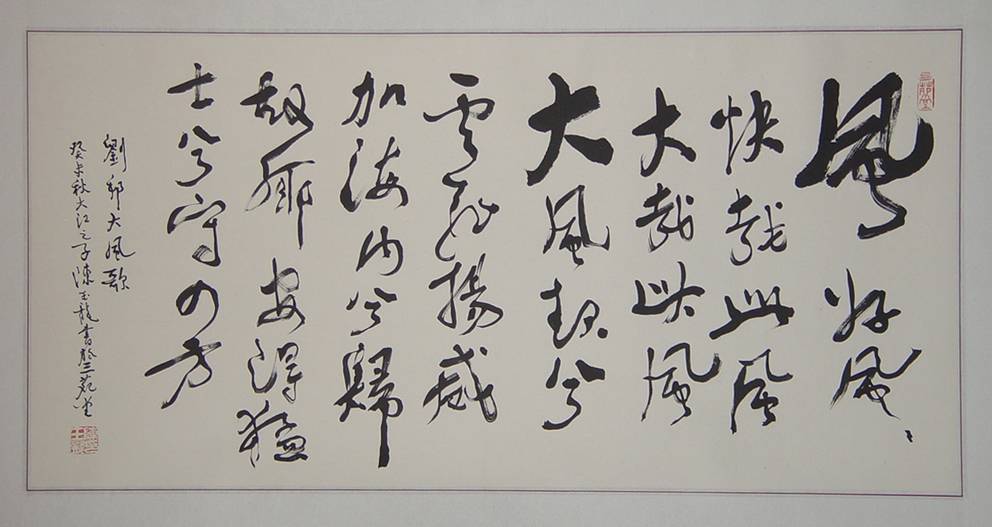 風好風
快哉此風
大哉此風
大風起兮
雲飛揚威
加海内兮歸
故鄉安得猛
士兮守四方
劉邦大風歌
癸未秋大江之子陳玉龍書於